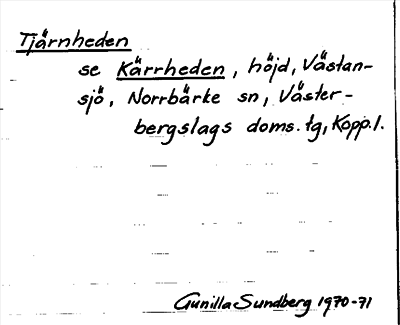 Tjärnheden
se Kärrheden, höjd, Västan-
sjö, Norrbärke sn, Väster-
bergslags doms. tg, Kopp. l.
Gunilla Sundberg 1970-71